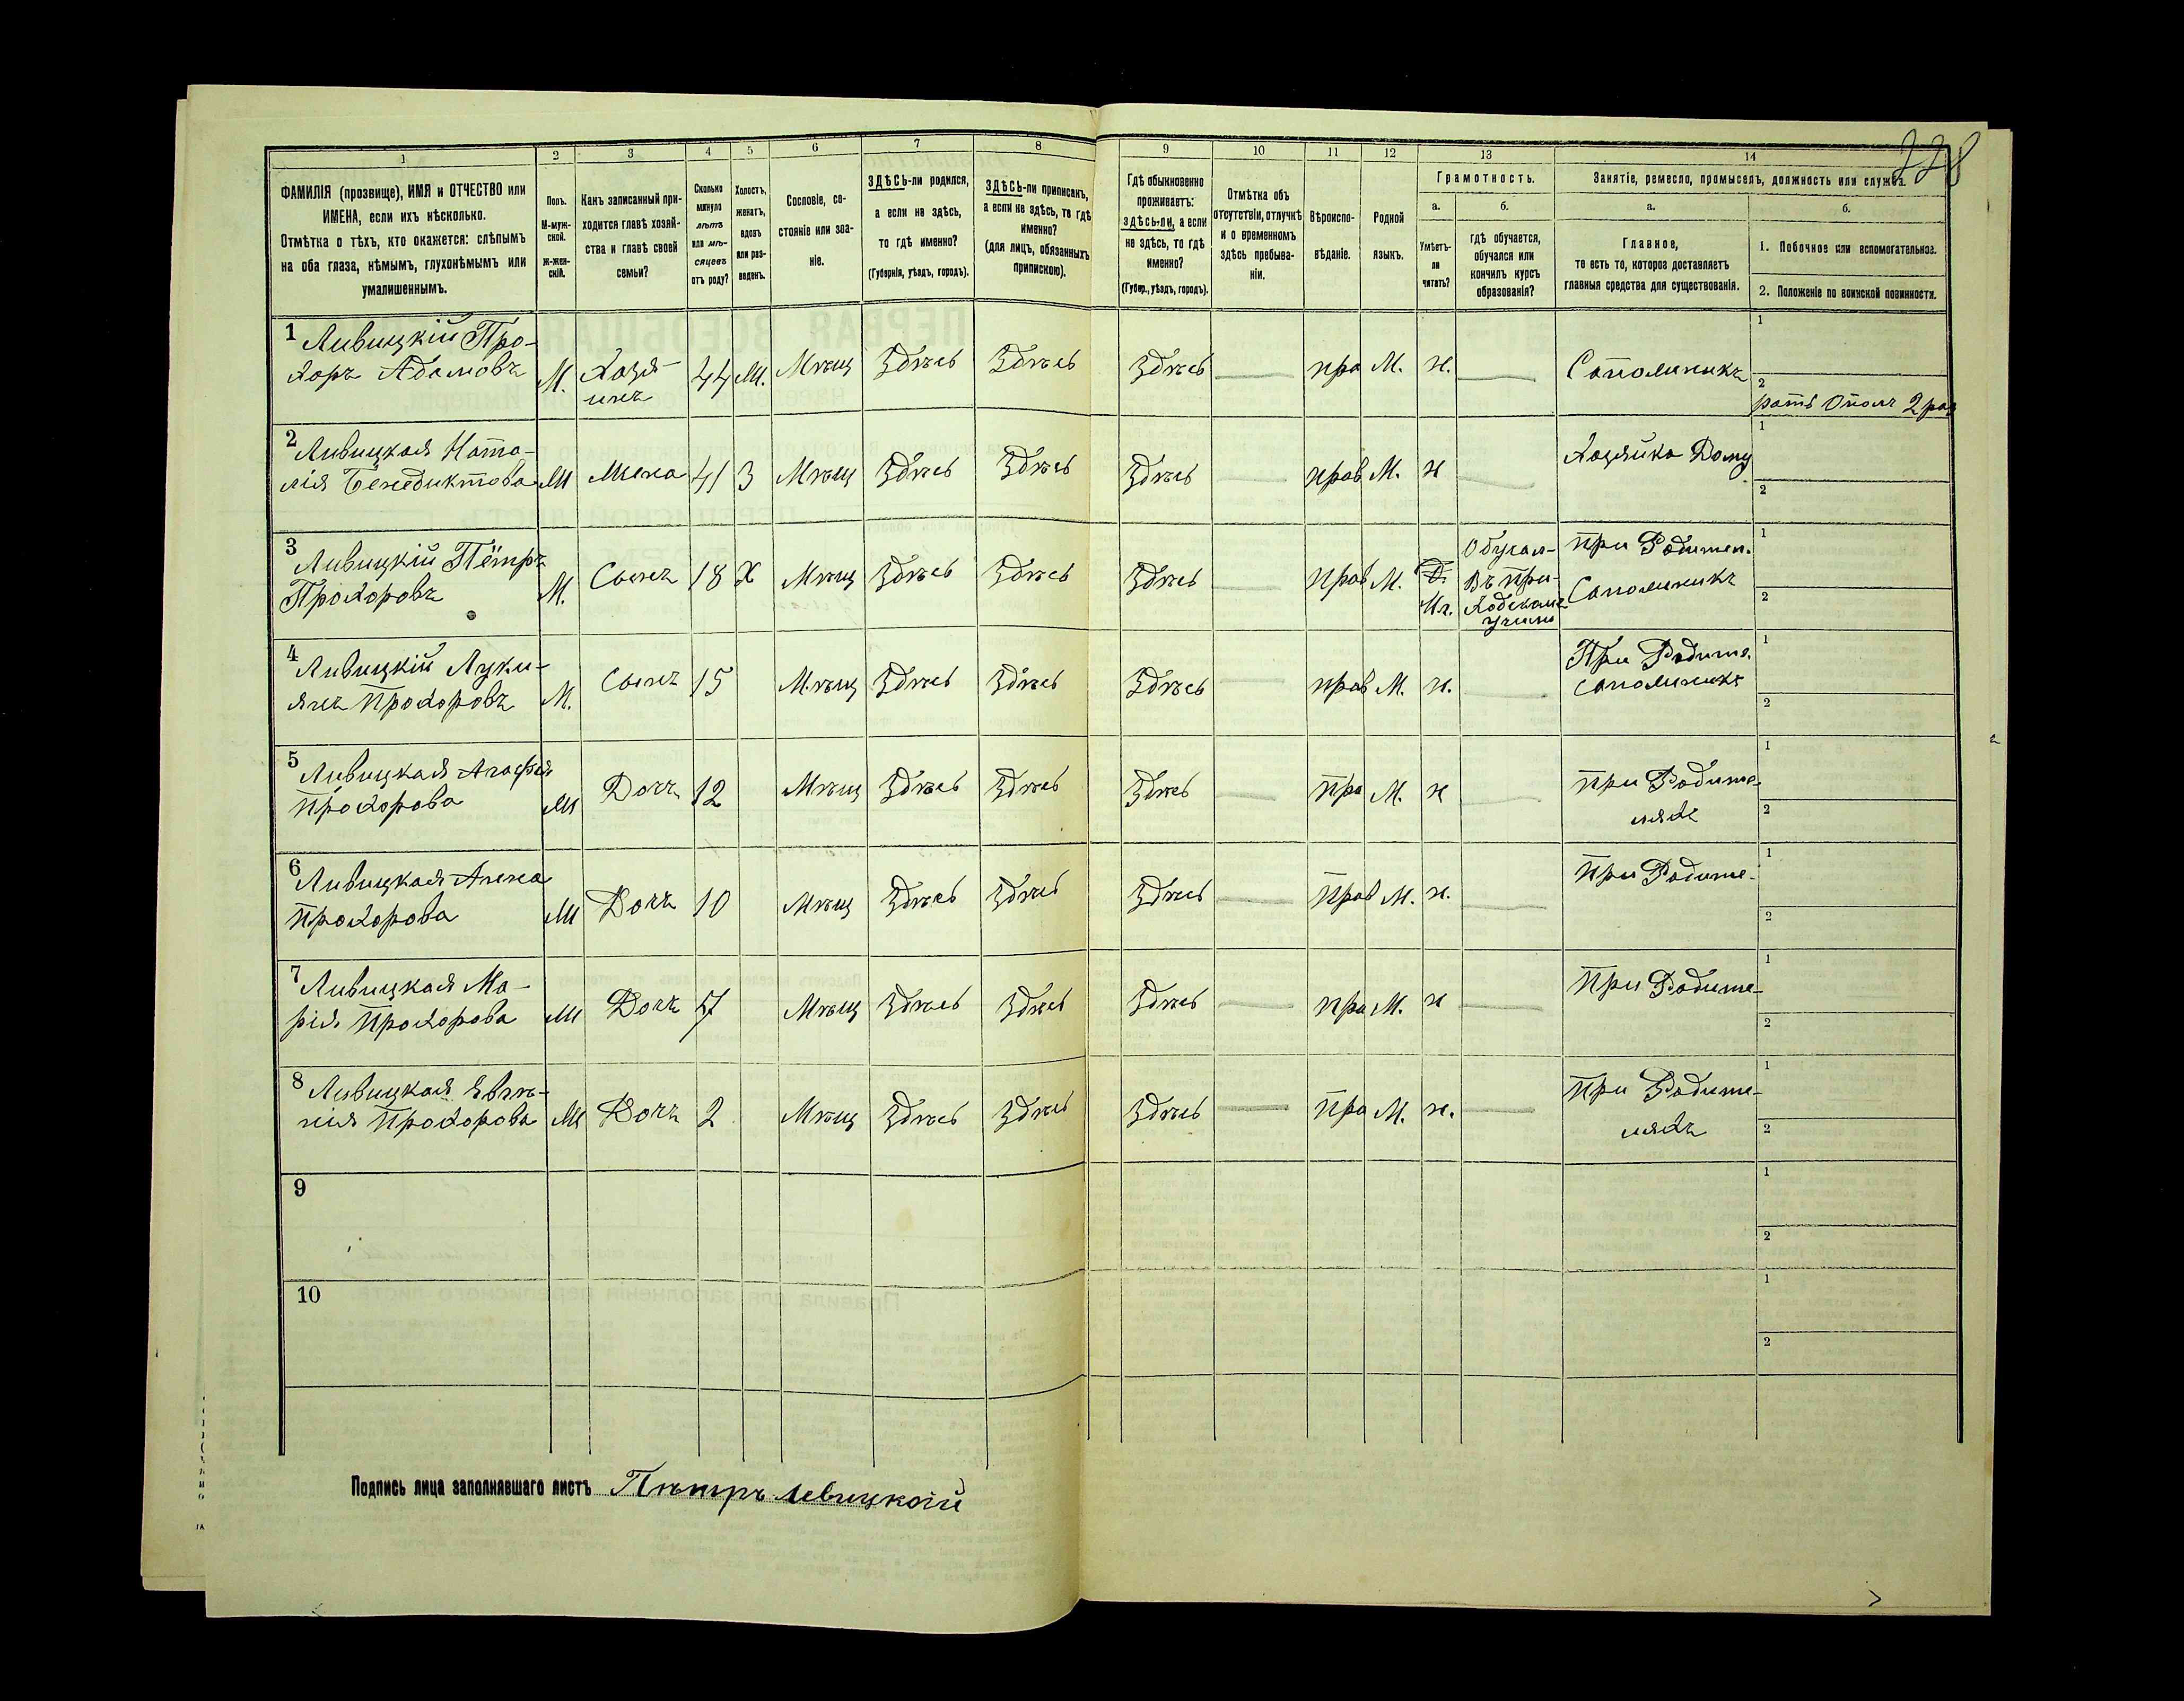 228
1 2 3 4 5 6 7 8 9 10 11 12 13 14
ФАМИЛІЯ (прозвище), ИМЯ и ОТЧЕСТВО или
ИМЕНА, если ихъ нѣсколько.
Отмѣтка о тѣхъ, кто окажется: слѣпымъ
на оба глаза, нѣмымъ, глухонѣмымъ или
умалишеннымъ.
Полъ.
М-муж-
ской.
ж-жен-
скій.
Какъ записанный при-
ходится главѣ хозяй-
ства и главѣ своей
семьи?
Сколько
минуло
лѣтъ
или мѣ-
сяцевъ
отъ роду?
Холостъ,
женатъ,
вдовъ
или раз-
веденъ.
Сословіе, со-
стояніе или зва-
ніе.
ЗДѢСЬ-ли родился,
а если не здѣсь,
то гдѣ именно?
(Губернія, уѣздъ, городъ).
ЗДѢСЬ-ли приписанъ,
а если не здѣсь, то гдѣ
именно?
(для лицъ, обязанныхъ
припискою).
Гдѣ обыкновенно
проживаетъ:
здѣсь-ли, а если
не здѣсь, то гдѣ
именно?
(Губер., уѣздъ, городъ).
Отмѣтка объ
отсутствіи, отлучкѣ
и о временномъ
здѣсь пребыва-
ніи.
Вѣроиспо-
вѣданіе.
Родной
языкъ.
Грамотность.
а.
Умѣетъ-
ли
читать?
б.
гдѣ обучается,
обучался или
кончилъ курсъ
образованія?
Занятіе, ремесло, промыселъ, должность или служба.
а.
Главное,
то есть то, которое доставляетъ
главныя средства для существованія.
б.
1. Побочное или вспомогательное.
2. Положеніе по воинской повинности.
1 Ливицкій Про-
хоръ Адамовъ М. Хозя-
инъ 44 Ж. Мѣщ Здѣсь Здѣсь Здѣсь — пра М. н. — Сапожникъ
1
2
ратъ Ополч 2 раз
2 Ливицкая Ната-
лія Бенедиктова Ж Жена 41 З Мѣщ Здѣсь Здѣсь Здѣсь — прав М. н — Хозяйка Дому
1
2
3 Ливицкій Пётръ
Прохоровъ М. Сынъ 18 Х Мѣщ Здѣсь Здѣсь Здѣсь — прав М.
Обучал-
Въ При-
ходскомъ
учили
При Родител.
Сапожникъ
1
2
4 Ливицкій Луки-
янъ Прохоровъ М. Сынъ 15 Мѣщ Здѣсь Здѣсь Здѣсь — прав М. н. —
При Родите.
Сапожникъ
1
2
5 Ливицкая Агафія
Прохорова Ж Дочь 12 Мѣщ Здѣсь Здѣсь Здѣсь — Пра М. н —
при Родите-
ляхъ
1
2
6 Ливицкая Анна
Прохорова Ж Дочь 10 Мѣщ Здѣсь Здѣсь Здѣсь — Прав М. н. — при Родите-
1
2
7 Ливицкая Ма-
рія Прохорова Ж Дочь 7 Мѣщ Здѣсь Здѣсь Здѣсь — пра М. н — При Родите-
1
2
8 Ливицкая Евгѣ-
нія Прохорова Ж Дочь 2 Мѣщ Здѣсь Здѣсь Здѣсь — пра М. н. —
при Родите-
ляхъ
1
2
9
1
2
10
1
2
Подпись лица заполнявшаго листъ Пѣтръ Левицкой